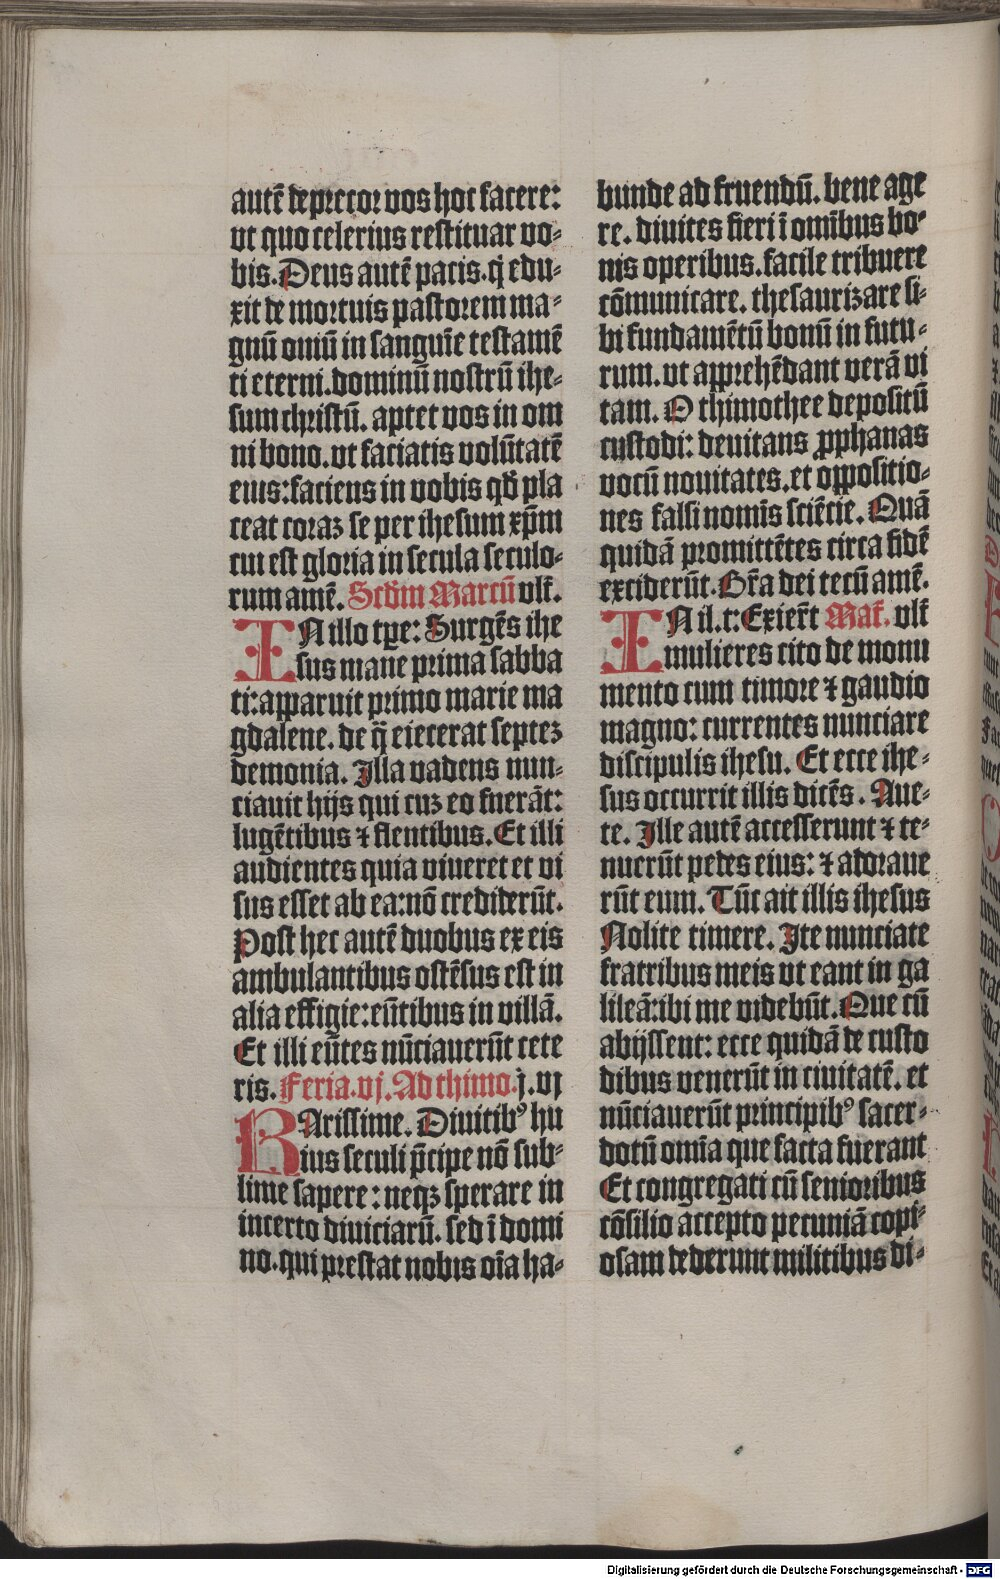 autē deprecor vos hoc facere:
vt quo celerius restituar vo-
bis. Deus autē pacis. q̇ edu-
xit de mortuis pastorem ma-
gnū oniū in sanguīe testamē
ti eterni. dominū nostrū ihe-
sum christū. aptet vos in om
ni bono. vt faciatis volūtatē
eius: faciens in vobis qd̄ pla
ceat coraz se per ihesum xp̄m
cui est gloria in secula seculo-
rum amē. Scd̄m Marcū vlt̄.
IN illo tp̄e: Surgēs ihe
sus mane prima sabba
ti: apparuit primo marie ma
gdalene. de q̄ eiecerat septez
demonia. Illa vadens nun-
ciauit hijs qui cuz eo fuerāt:
lugētibus ⁊ flentibus. Et illi
audientes quia viueret et vi
sus esset ab ea: nō crediderūt.
Post hec autē duobus ex eis
ambulantibus ostēsus est in
alia effigie: eūtibus in villā.
Et illi eūtes nūciauerūt cete
ris. Feria. vj. Ad thimo. j. vj
KArissime. Diuitibꝰ hu
ius seculi p̄cipe nō sub-
lime sapere: neqꝫ sperare in
incerto diuiciarū. sed ī domi
no. qui prestat nobis oīa ha-
bunde ad fruendū. bene age
re. diuites fieri ī omībus bo-
nis operibus. facile tribuere
cōmunicare. thesaurizare si-
bi fundamētū bonū in futu-
rum. vt apprehēdant verā vi
tam. O thimothee depositū
custodi: deuitans ꝓphanas
vocū nouitates. et oppositio-
nes falsi nomīs sciētie. Quā
quidā promittētes circa fidē
exciderūt. Gr̄a dei tecū amē.
IN il. t: Exier̄t Mat̄. vlt̄
mulieres cito de monu
mento cum timore ⁊ gaudio
magno: currentes nunciare
discipulis ihesu. Et ecce ihe-
sus occurrit illis dicēs. Aue-
te. Ille autē accesserunt ⁊ te-
nuerūt pedes eius: ⁊ adoraue
rūt eum. Tūc ait illis ihesus
Nolite timere. Ite nunciate
fratribus meis vt eant in ga
lileā: ibi me videbūt. Que cū
abijssent: ecce quidā de custo
dibus venerūt in ciuitatē. et
nūciauerūt principibꝰ sacer-
dotū omīa que facta fuerant
Et congregati cū senioribus
cōsilio accepto pecuniā copi-
osam dederunt militibus di-
Digitalisierung gefördert durch die Deutsche Forschungsgemeinschaft - DFG